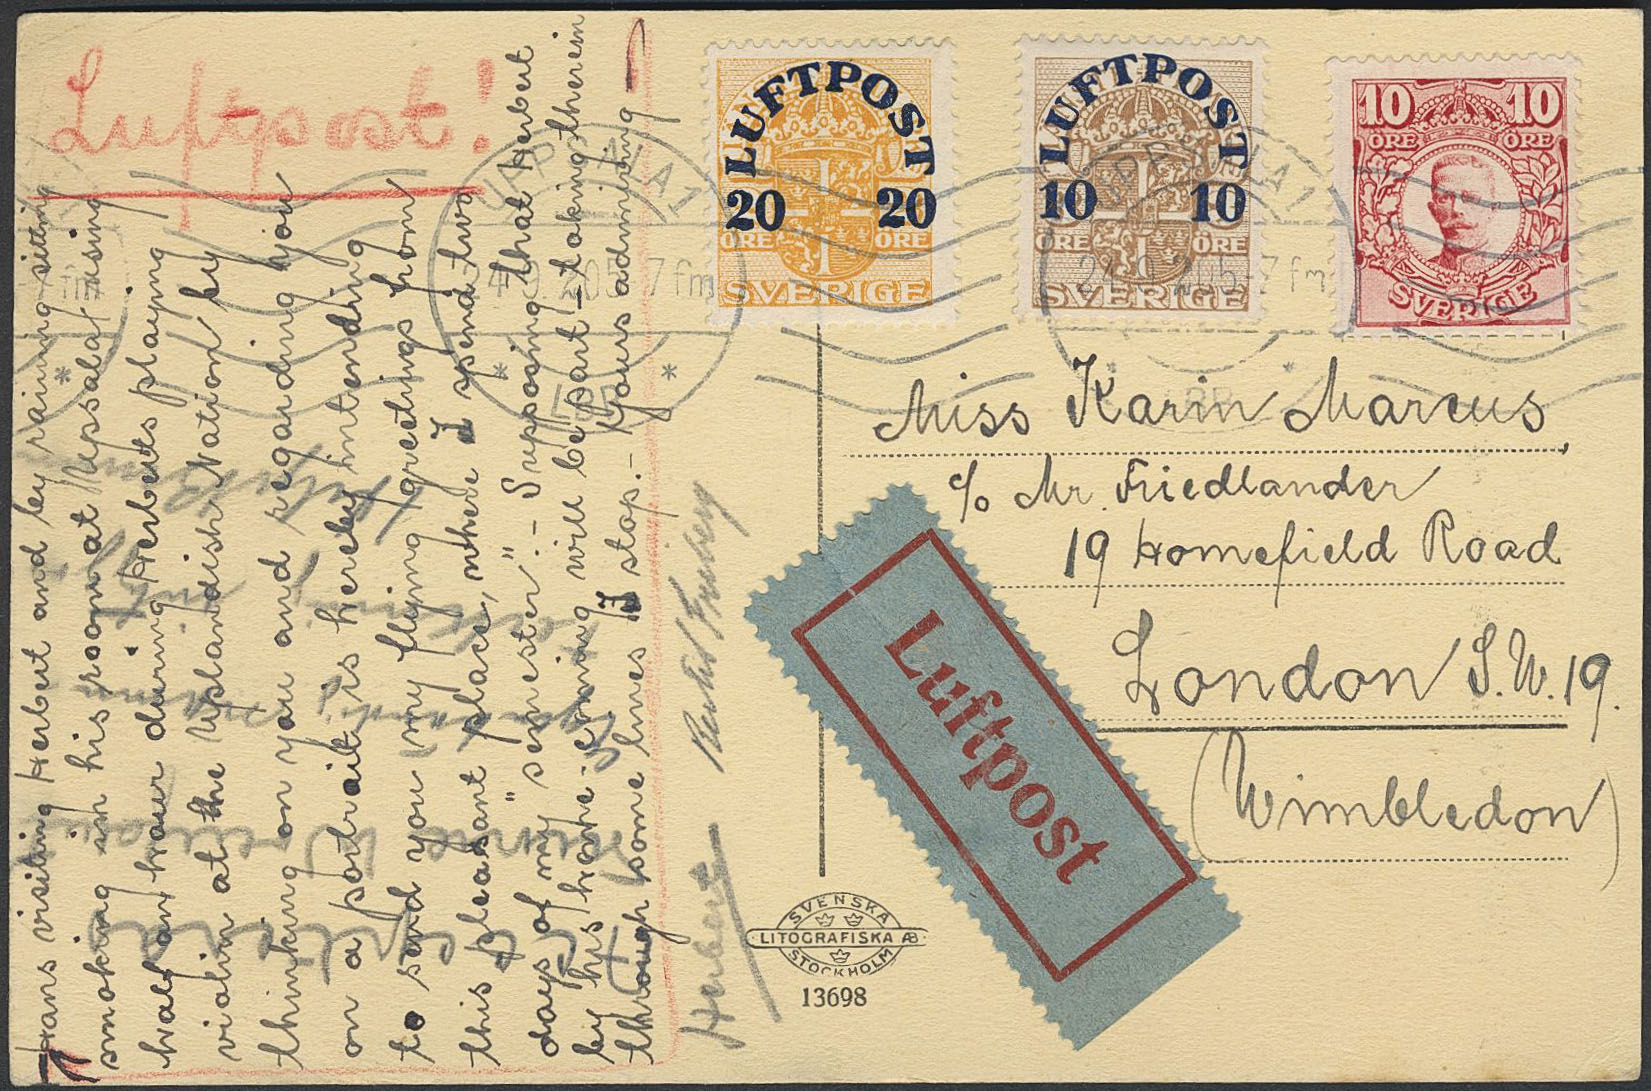 Luftpost!
LUFTPOST
20 20
ÖRE ÖRE
SVERIGE
LUFTPOST
10 10
ÖRE ÖRE
SVERIGE
10 10
ÖRE ÖRE
SVERIGE
UPPSALA 1
24.9.20 5-7 fm
* LBR *
UPPSALA 1
24.9.20 5-7 fm
Hans visiting Herbert and by raining sitting
smoking in his room at Upsala, using
half an hour during Herberts playing
violin at the Uplandish Nation by
thinking on you and regarding you
on a portrait is hereby intending
to send you my flying greetings from
this pleasant place, where I spend two
days of my "semester". - Supposing that Herbert
by his home-coming will be part-taking therein
through some lines I stop. - Yours admiring
Herbert
Miss Karin Marcus,
c/o Mr Friedlander
19 Homefield Road
London S.W.19.
(Wimbledon)
Luftpost
SVENSKA
LITOGRAFISKA AB
STOCKHOLM
13698